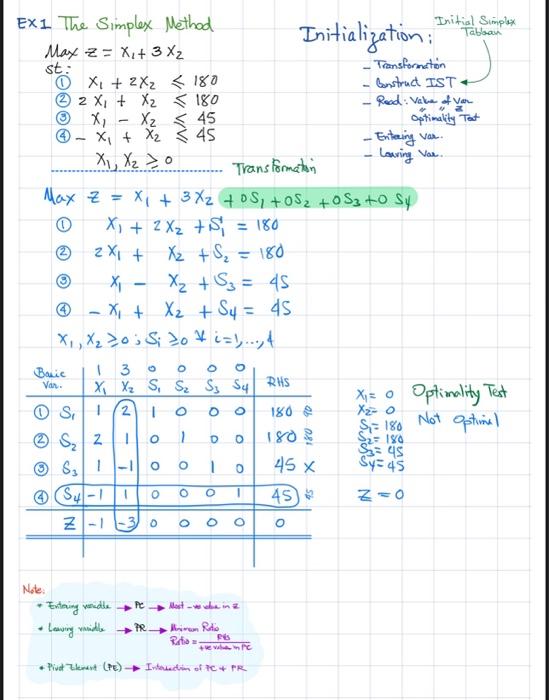 EX1 The Simplex Method
Max Z = X₁ + 3 X₂
st:
① X₁ + 2X₂ ≤ 180
② 2 X₁ + X₂ ≤ 180
③ X₁ - X₂ ≤ 45
④ - X₁ + X₂ ≤ 45
X₁, X₂ ≥ 0
Initialization:
Initial Simplex
Tableau
- Transformation
- Construct IST
- Read: Value of Var
" " Z
Optimality Test
- Entering Var.
- Leaving Var.
Transformation
Max Z = X₁ + 3 X₂ + 0S₁ + 0S₂ + 0S₃ + 0 S₄
① X₁ + 2 X₂ + S₁ = 180
② 2 X₁ + X₂ + S₂ = 180
③ X₁ - X₂ + S₃ = 45
④ - X₁ + X₂ + S₄ = 45
X₁, X₂ ≥ 0 ; Sᵢ ≥ 0 ∀ i = 1,...,4
Basic 1 3 0 0 0 0
Var. X₁ X₂ S₁ S₂ S₃ S₄ RHS
① S₁ 1 2 1 0 0 0 180
② S₂ 2 1 0 1 0 0 180
③ S₃ 1 -1 0 0 1 0 45 X
④ S₄ -1 1 0 0 0 1 45
Z -1 -3 0 0 0 0 0
X₁ = 0
X₂ = 0
S₁ = 180
S₂ = 180
S₃ = 45
S₄ = 45
Z = 0
Optimality Test
Not optimal
Note:
* Entering variable → PC → Most -ve value in Z
* Leaving variable → PR → Minimum Ratio
Ratio = RHS / +ve value in PC
* Pivot Element (PE) → Intersection of PC + PR